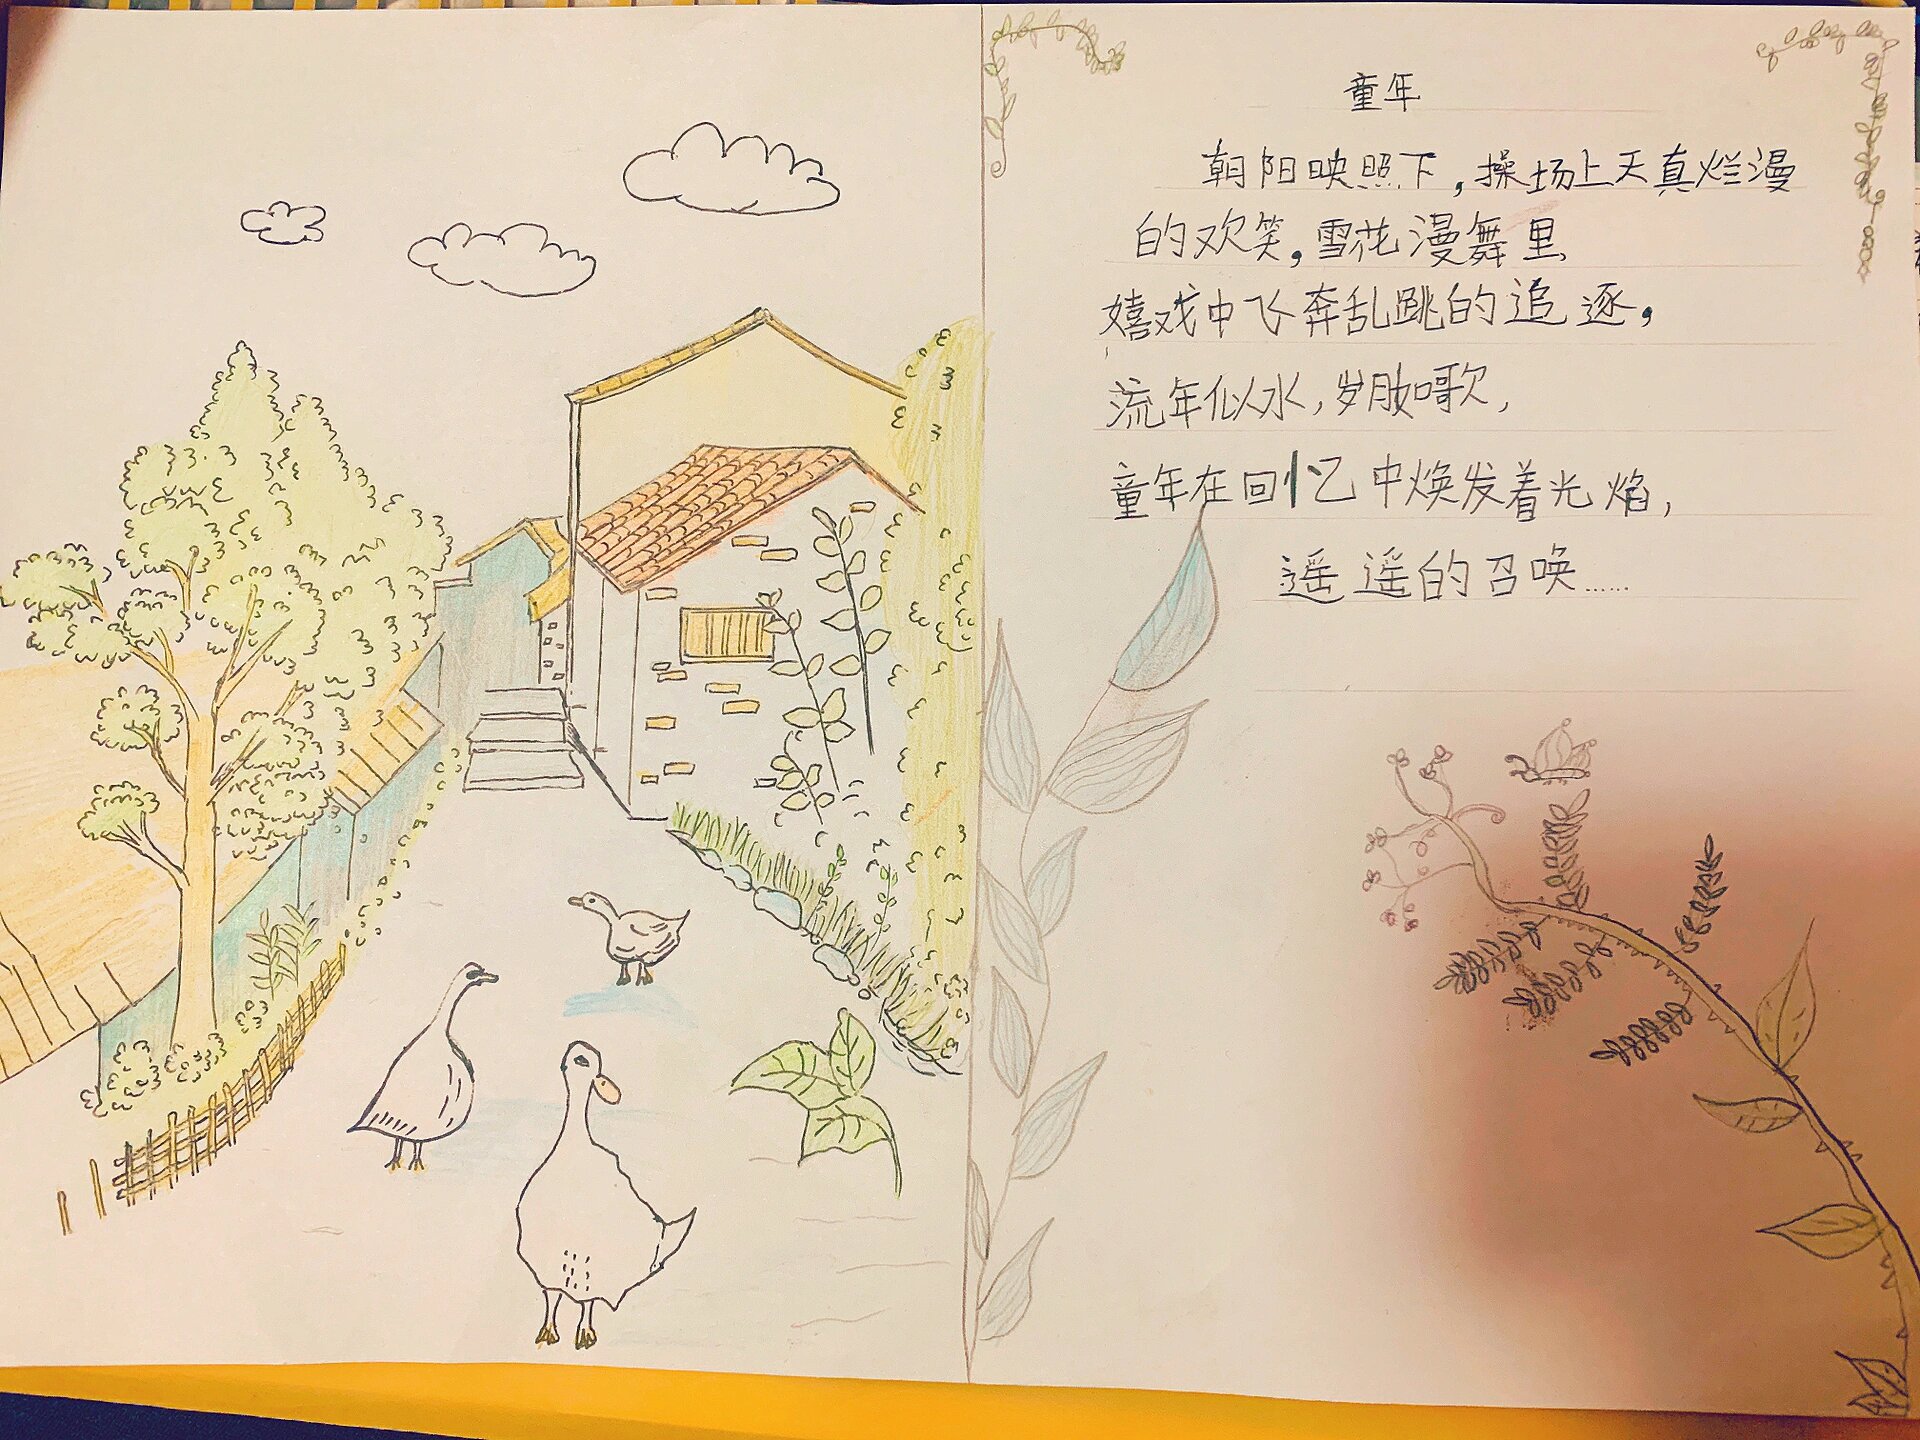 童年
朝阳映照下，操场上天真烂漫
的欢笑，雪花漫舞里
嬉戏中飞奔乱跳的追逐，
流年似水，岁月如歌，
童年在回忆中焕发着光焰，
遥遥的召唤……